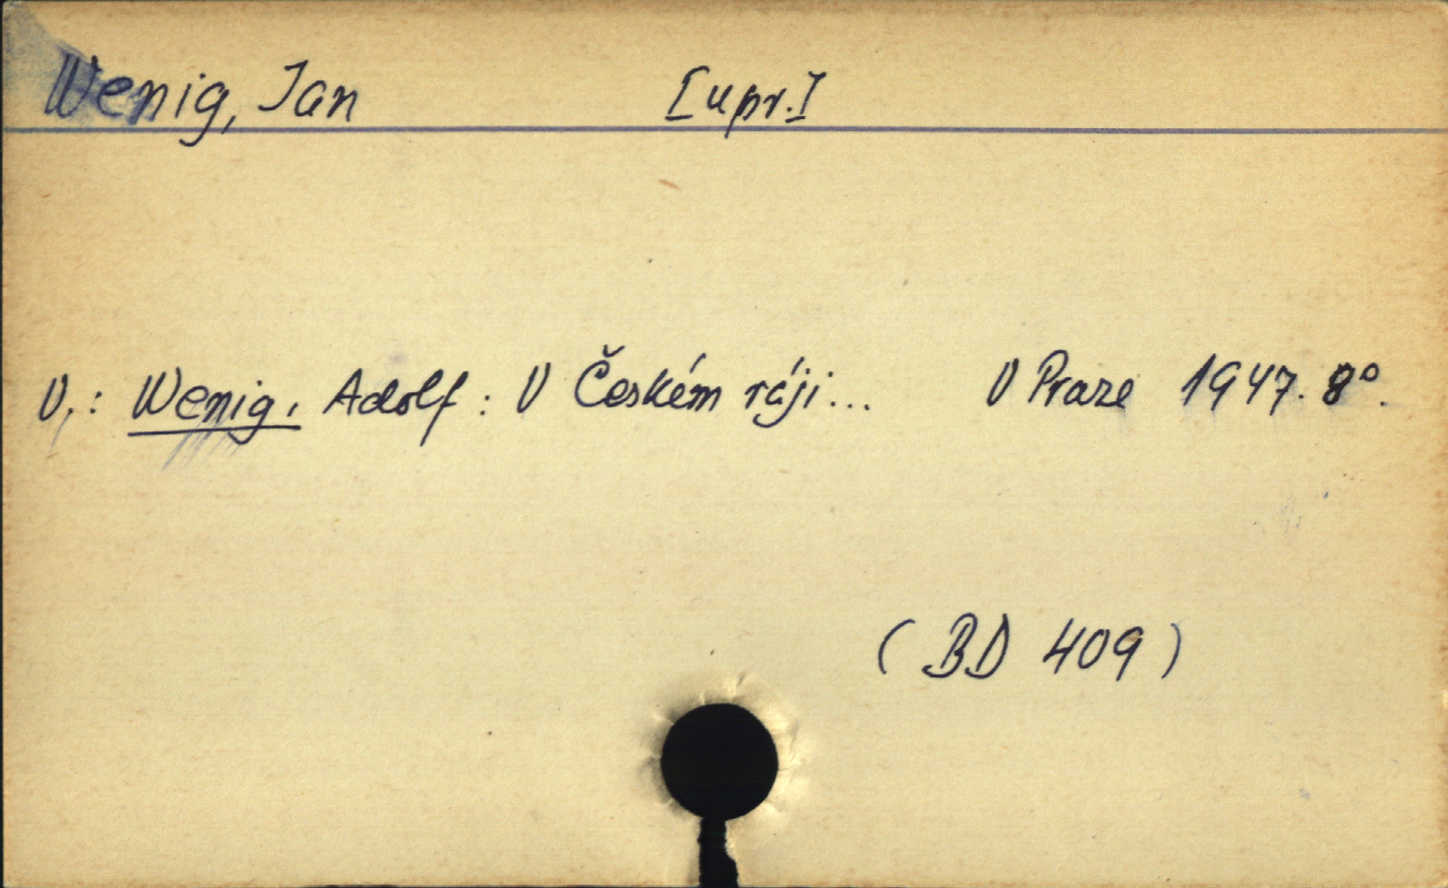 Wenig, Jan [upr.]
V.: Wenig, Adolf: V Českém ráji... V Praze 1947. 8°.
(BD 409)